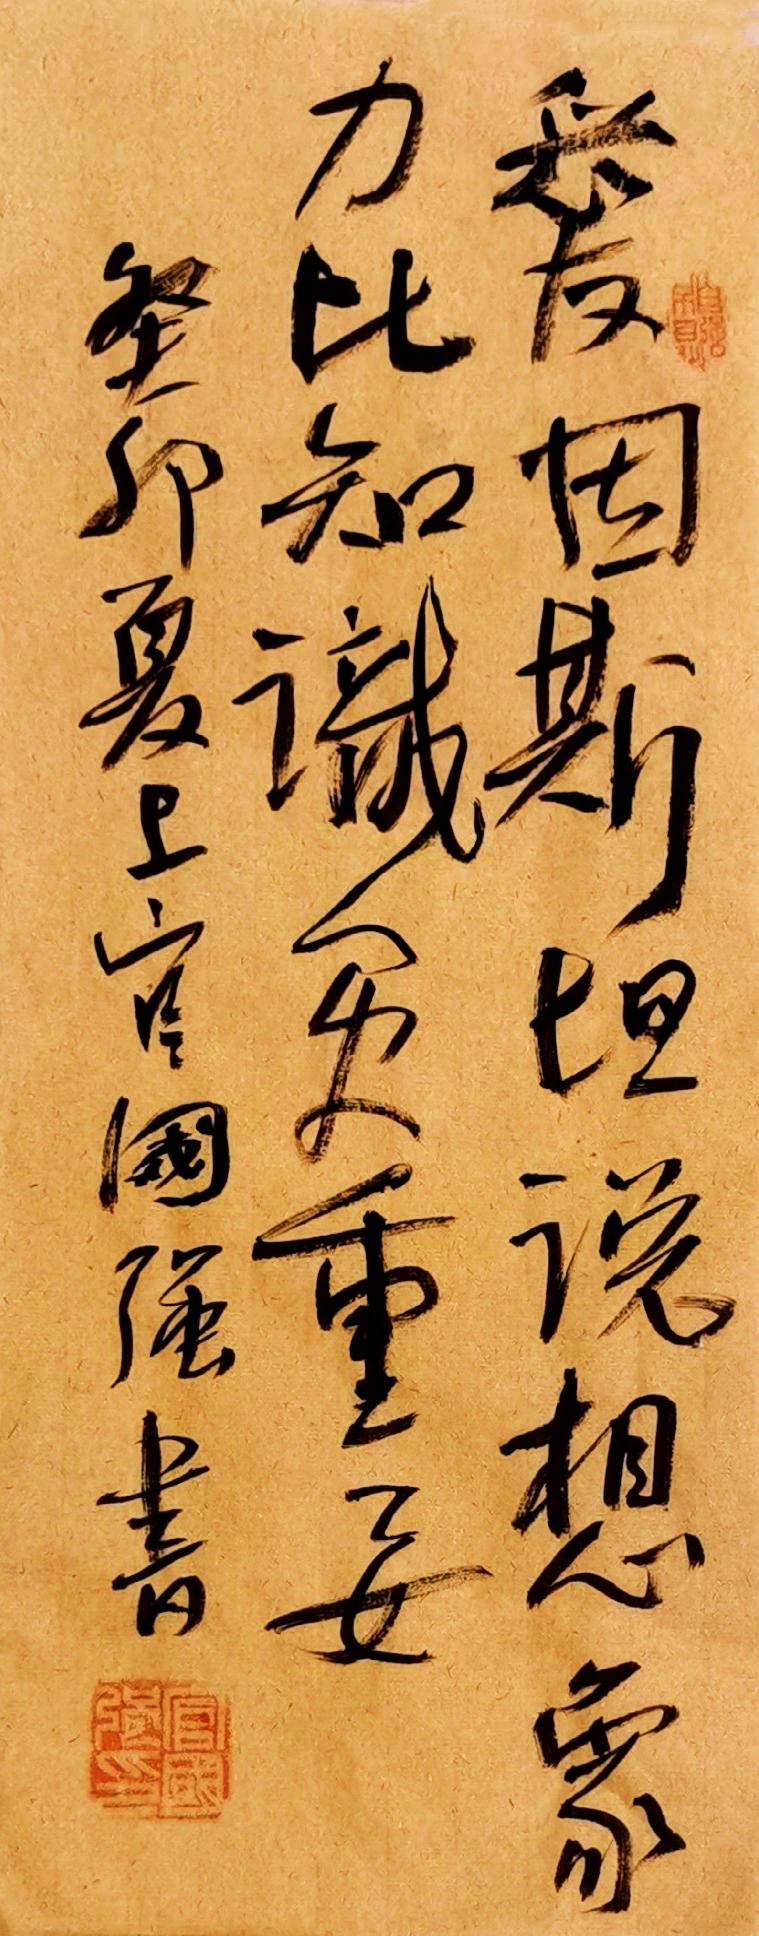 爱因斯坦说想象
力比知識更重要
癸卯夏上官國强書